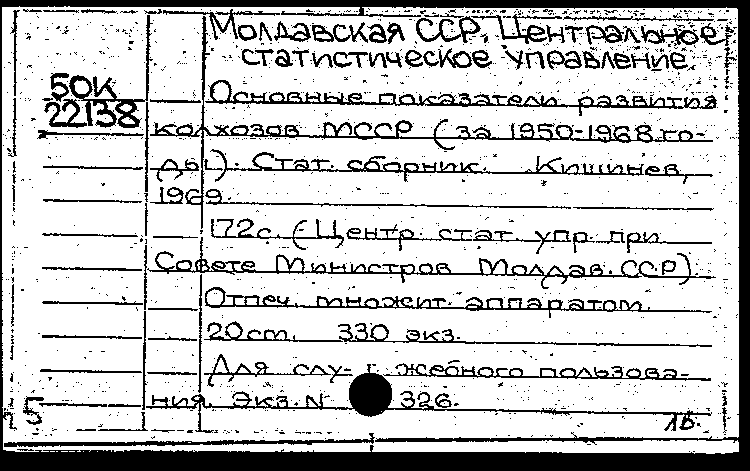 Молдавская ССР. Центральное
статистическое управление.
50К
22138
Основные показатели развития
колхозов МССР (за 1950-1968 го-
ды). Стат. сборник. Кишинев,
1969.
172с. (Центр. стат. упр. при
Совете Министров Молдав. ССР).
Отпеч. множит. аппаратом.
20cm. 330 экз.
Для слу- жебного пользова-
ния. Экз. N 326.
5
1Б.